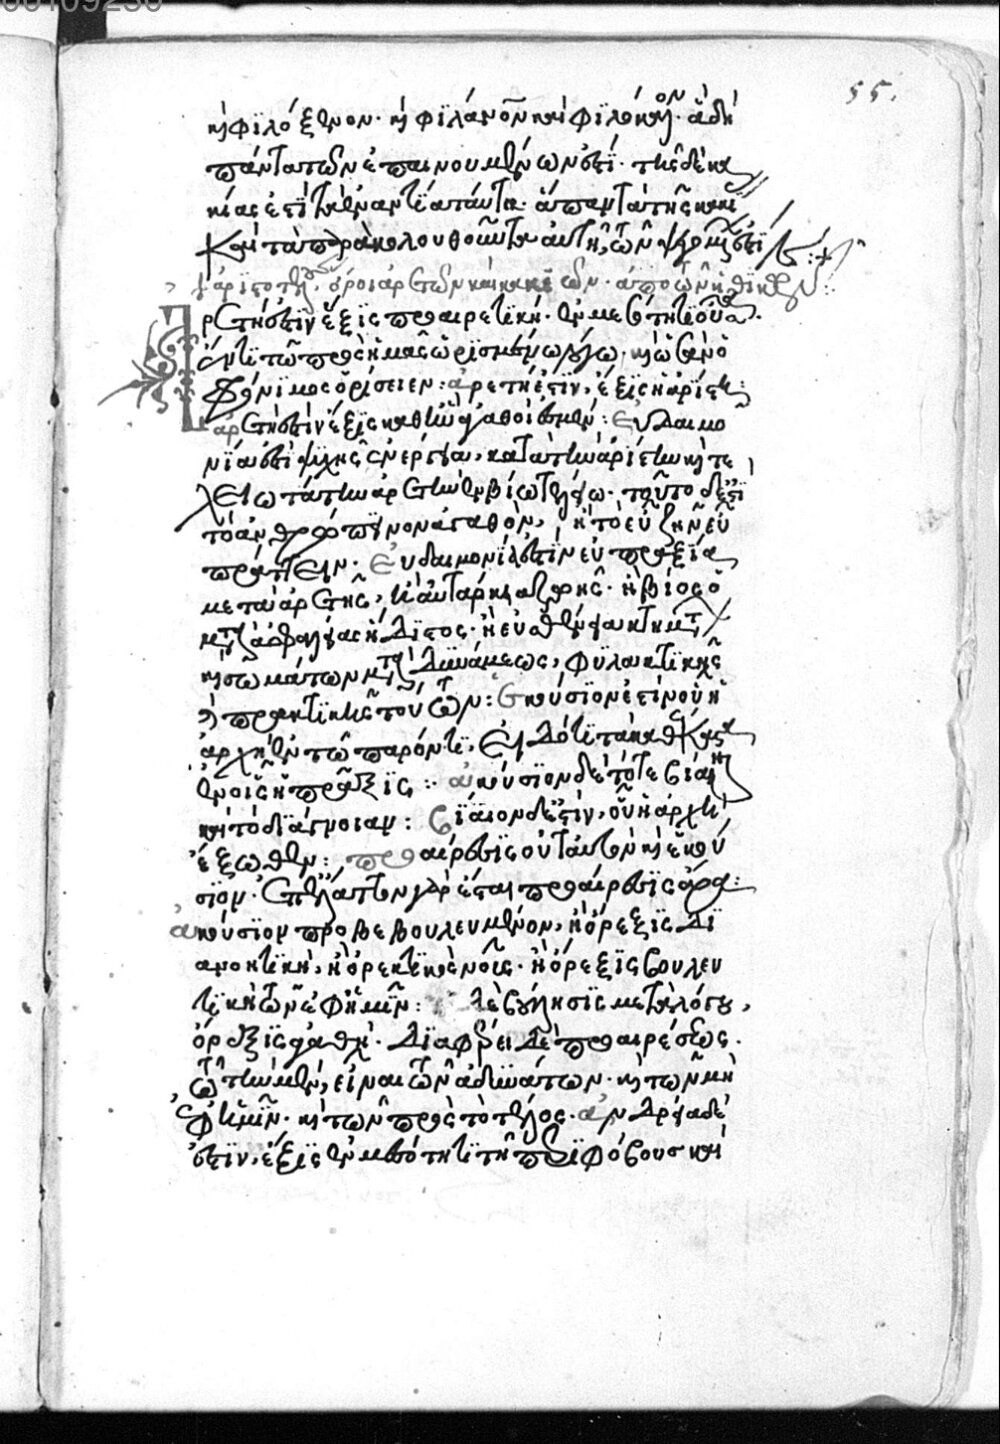 55.
καὶ φιλόξενον· καὶ φιλάνθρωπον καὶ φιλόκαλον· ἃ δὴ
πάντα τῶν ἐπαινουμένων ἐστί· τῆς δὲ κα
κίας ἐστὶ τὰ ἐναντία πάντα· ἅπαντα τῆς κακί
καὶ τὰ παρακολουθοῦντα αὐτῆ, τῶν ψεγομένων ἐστί
ἀριστοτέλους ὅροι ἀρετῶν καὶ κακιῶν· ἀπὸ τῶν ἠθικῶν
ἀρετή ἐστιν ἕξις προαιρετική· ἐν μεσότητι οὖσα
τῆ πρὸς ἡμᾶς ὡρισμένη λόγω· καὶ ὡς ἂν ὁ
φρόνιμος ὁρίσειεν: ἀρετή ἐστιν, ἕξις ἡ ἀρίστη:
ἀρετή ἐστιν ἕξις καθ' ἣν ἀγαθοί ἐσμεν: Εὐδαιμο
νία ἐστὶ ψυχῆς ἐνέργεια, κατὰ τὴν ἀρίστην καὶ τε
λειωτάτην ἀρετὴν ἐν βίω τελείω· τοῦτο δέ ἐστι
τὸ ἀνθρώπινον ἀγαθόν, ἢ τὸ εὖ ζῆν εὖ
πράττειν· Εὐδαιμονία ἐστὶν εὐπραξία
μετὰ ἀρετῆς, ἢ αὐτάρκεια ζωῆς· ἢ βίος ὁ
μετὰ ἀσφαλείας ἥδιστος· ἢ εὐθένεια κτημάτων
καὶ σωμάτων μετὰ δυνάμεως, φυλακτικῆς
ἢ πρακτικῆς τούτων: Ἑκούσιον ἐστὶν οὗ ἡ
ἀρχὴ ἐν τῶ παρόντι, εἰδότι τὰ καθ' ἕκαστα
ἐν οἷς ἡ πρᾶξις :· ἀκούσιον δὲ τό τε βίαι
καὶ τὸ δι' ἄγνοιαν: βίαιον δέ ἐστιν, οὗ ἡ ἀρχὴ
ἔξωθεν: προαίρεσις οὐ ταὐτὸν καὶ ἑκού
σιον· ἐπὶ ἔλαττον γὰρ ἐστι προαίρεσις ἄρα:
ἀκούσιον προβεβουλευμένον, ἢ ὄρεξις δι
ανοητικὴ, ἢ ὀρεκτικὸς νοῦς· ἢ ὄρεξις βουλευ
τικὴ τῶν ἐφ' ἡμῖν: δὲ βούλησις μετὰ λόγου,
ὄρεξις ἀγαθῆ· Διαφέρει δὲ προαιρέσεως·
τῶ τὴν μὲν, εἶναι τῶν ἀδυνάτων· καὶ τῶν μὴ
ἐφ' ἡμῖν· καὶ τῶν πρὸς τὸ τέλος· ἀνδρεία δέ
ἐστιν, ἕξις ἐν μεσότητι τῆ περὶ φόβους καὶ